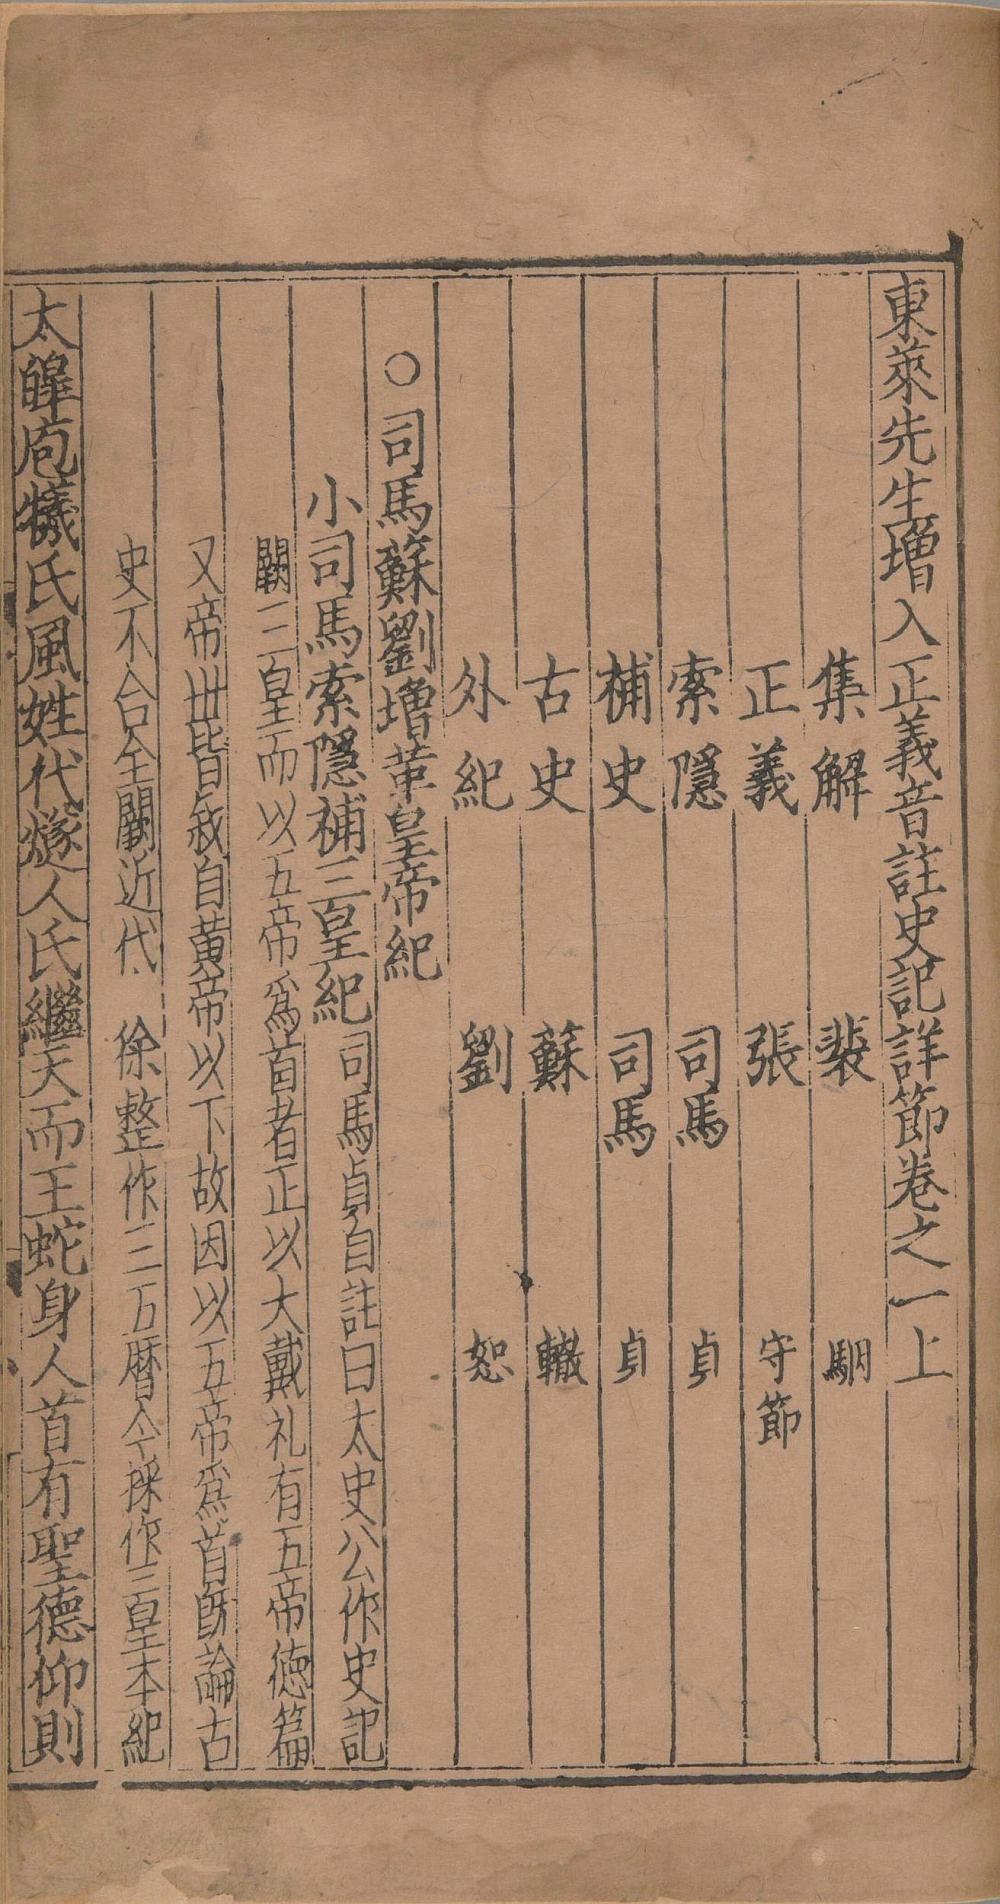 東萊先生增入正義音註史記詳節卷之一上
集解 裴 駰
正義 張 守節
索隱 司馬 貞
補史 司馬 貞
古史 蘇 轍
外紀 劉 恕
○司馬蘇劉增革皇帝紀
小司馬索隱補三皇紀 司馬貞自註曰太史公作史記
闕三皇而以五帝爲首者正以大戴礼有五帝德篇
又帝丗皆叙自黃帝以下故因以五帝爲首旣論古
史不合全闕近代 徐整作三五曆今採作三皇本紀
太皥庖犧氏風姓代燧人氏繼天而王蛇身人首有聖德仰則